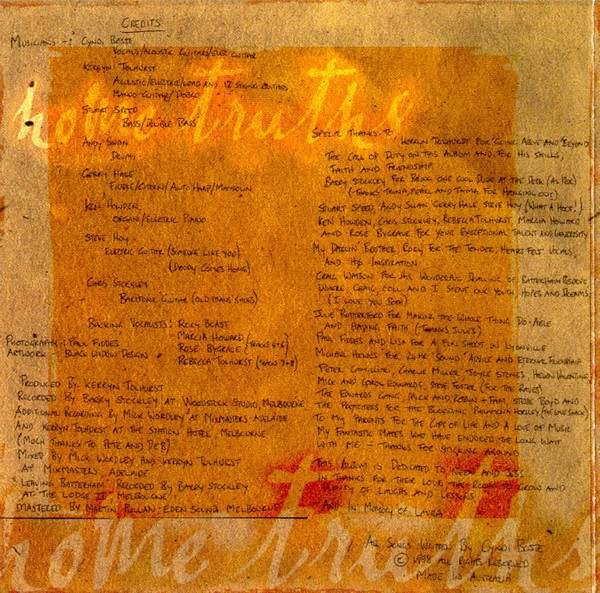 Credits
Musicians -: Cyndi Boste
Vocals/Acoustic Guitars/Elec Guitar
Kerryn Tolhurst
Acoustic/Electric/Lead and 12 String Guitars
Mando Guitar/Dobro
Stuart Speed
Bass/Double Bass
Andy Swan
Drums
Gerry Hale
Fiddle/Cittern/Auto Harp/Mandolin
Ken Howden
Organ/Electric Piano
Steve Hoy
Electric Guitar (Someone Like You)
(Daddy Comes Home)
Chris Stockley
Baritone Guitar (Old Mans Shoes)
Backing Vocalists: Rory Boast
Marcia Howard (Tracks 4+6)
Rose Bygrave
Rebecca Tolhurst (Tracks 7+8)
Photography: Paul Fiddes
Artwork - Black Widow Design
Produced By Kerryn Tolhurst
Recorded By Barry Stockley at Woodstock Studio, Melbourne
Additional Recording By Mick Wordley at Mixmasters Adelaide
and Kerryn Tolhurst at the Station Hotel, Melbourne
(Much Thanks to Pete and Deb)
Mixed By Mick Wordley and Kerryn Tolhurst
at Mixmasters, Adelaide
"Leaving Batterham" Recorded By Barry Stockley
at "The Lodge II" Melbourne
Mastered By Martin Pullan: Eden Sound Melbourne
home truths
Special Thanks To,
Kerryn Tolhurst For Going Above and Beyond
The Call of Duty on this Album and For His Skills,
Faith and Friendship
Barry Stockley For Being One Cool Dude at the Desk (As Per)
(Thanks Trina, Pearl and Tayma For Hanging Out)
Stuart Speed, Andy Swan, Gerry Hale, Steve Hoy (What a Hoot!)
Ken Howden, Chris Stockley, Rebecca Tolhurst, Marcia Howard
and Rose Bygrave For Your Exceptional Talent and Generosity
My Darlin' Brother Rory For the Tender, Heart Felt Vocals,
and His Inspiration
Craig Watson For His Wonderful Drawing of Batterham Reserve
Where Craig, Coll and I Spent Our Youth, Hopes and Dreams
(I Love You Both)
Julie Rutherford For Making the Whole Thing Do-Able
and Having Faith (Thanks Jules)
Paul Fiddes and Lisa For a Fun Shoot in Lyonville
Michael Heynes For Some 'Sound' Advice and Eternal Friendship
Peter Camilleri, Charlie Miller, Joyce Stones, Helen Valentine
Mick and Carol Edwards, Steve Foster (For the Raves)
The Edwards Gang, Mick and Robyn + Fam, Steve Boyd and
the Proprietors For the Bloodline, Palomino Horley (The Love Shack)
To My Parents For the Gift of Life and a Love of Music
My Fantastic Mates Who Have Endured the Long Wait
With Me - Thanks For Sticking Around
This Album is Dedicated to
In Thanks For Their Love, the Room to Grow and
Plenty of Laughs and Lessons
And In Memory of Laura
All Songs Written By Cyndi Boste
© 1998 All Rights Reserved
Made In Australia
home truths